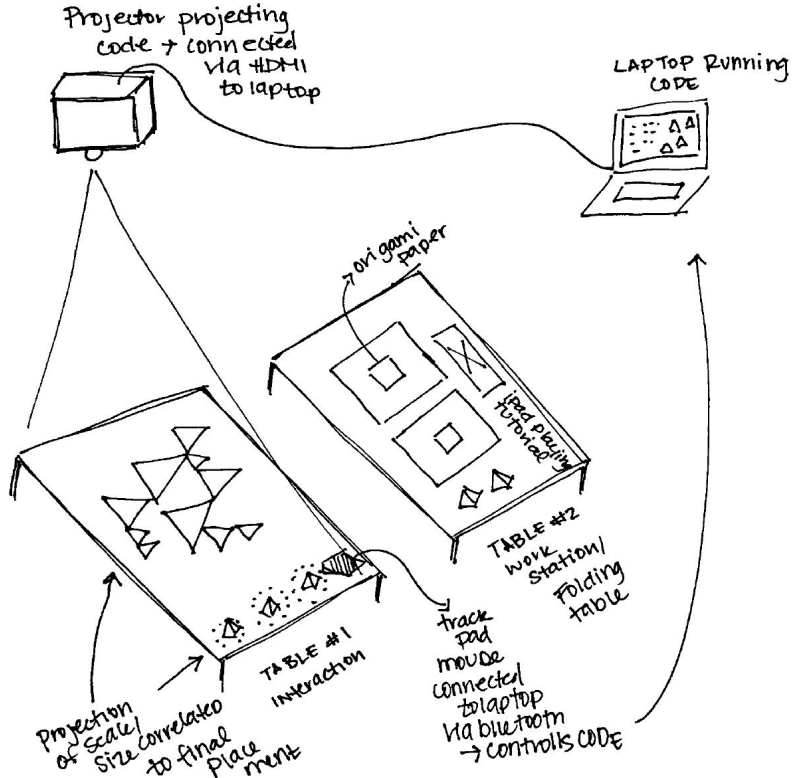 Projector projecting
code → connected
via HDMI
to laptop
LAPTOP Running
CODE
origami
paper
ipad playing
tutorial
TABLE #2
work
station/
Folding
table
TABLE #1
interaction
track
pad
mouse
connected
to laptop
via bluetooth
→ controlls CODE
Projection
of scale/
size correlated
to final
place
ment